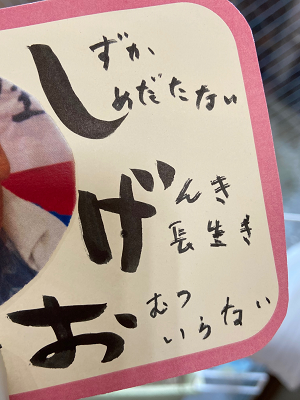 しずか
めだたない
げんき
長生き
おむつ
いらない